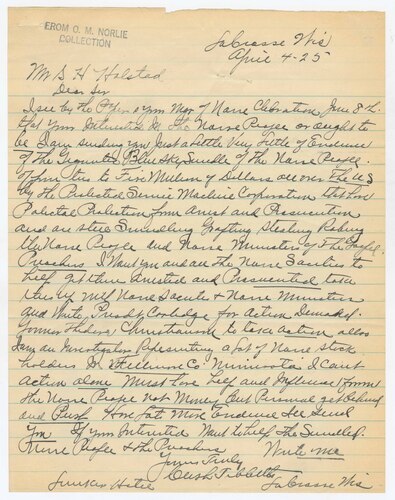 FROM O. M. NORLIE
COLLECTION
LaCrosse Wis
April 4-25
Mr S H Holstad
Dear Sir
I see by the Paper o your Mgr of Norse Clebration June 8th
that your Intrested In the Norse People or ought to
be I am sending you Just a Little Very Little of Evedence
of the Gigantic Blue Sky Swindle of the Norse People
of from two to Five Million of Dollars all over the US
by the Protected Service Machine Corporation that have
Political Protection from Arrest and Prosecution
and are still Swindling Grafting Stealing Robing
the Norse People and Norse Ministers of The Gospel
Preachers I Want you and all the Norse Societies to
help get them Arrested and Prosecuted take
this up with Norse Societies & Norse Ministers
and Write Presdy Coolidge for Action Demand
Governor Theodore Christianson to take action allso
I am an Investigator Representing a lot of Norse Stock
holders In Fillmore Co Minnisota I Cant
action alone Must have help and Influence from
the Norse People not Money But Personal get Behind
and Push Have lots More Evedence Ile Send
You If your Intrested Want to help the Swindled
Norse People & the Preachers Write me
Yours Truly
Tibbetts
LaCrosse Wis